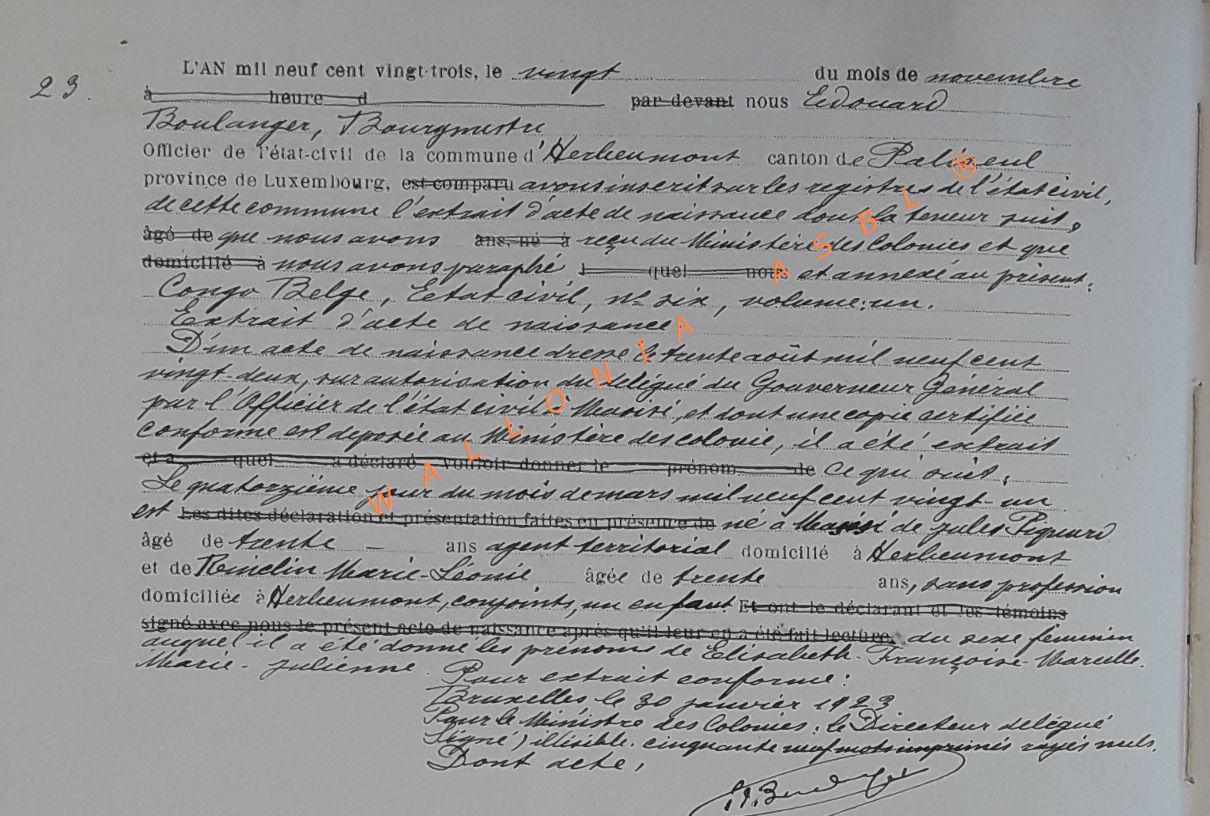 23.
L'AN mil neuf cent vingt-trois, le vingt du mois de novembre
à heure d par devant nous Edouard
Boulanger, Bourgmestre
Officier de l'état-civil de la commune d'Herbeumont canton de Paliseul
province de Luxembourg, est comparu avons inscrit sur les registres de l'état civil,
de cette commune l'extrait d'acte de naissance dont la teneur suit,
âgé de que nous avons ans, né à reçu du Ministère des Colonies et que
domicilié à nous avons paraphé l quel nous et annexé au présent.
Congo Belge, Etat civil, n° six, volume: un.
Extrait d'acte de naissance.
D'un acte de naissance dressé le trente août mil neuf cent
vingt-deux, sur autorisation du délégué du Gouverneur Général
par l'Officier de l'état civil à et dont une copie certifiée
conforme est déposée au Ministère des colonie, il a été extrait
et à quel a déclaré vouloir donner le prénom de ce qui suit:
Le quatorzième jour du mois de mars mil neuf cent vingt un
est Les dites déclaration et présentation faites en présence de né à de Jules
âgé de trente – ans agent territorial domicilié à Herbeumont
et de Marie-Léonie âgée de trente ans, sans profession
domiciliée à Herbeumont, conjoints, un enfant Et ont le déclarant et les témoins
signé avec nous le présent acte de naissance après qu'il leur en a été fait lecture. du sexe féminin
auquel il a été donné les prénoms de Elisabeth-Françoise-Marcelle-
Marie-Julienne. Pour extrait conforme:
Bruxelles le 30 janvier 1923
Pour le Ministre des Colonies: le Directeur délégué
Signé) illisible. cinquante neuf mots imprimés rayés nuls.
Dont acte,
WALLONIA ASBL ®